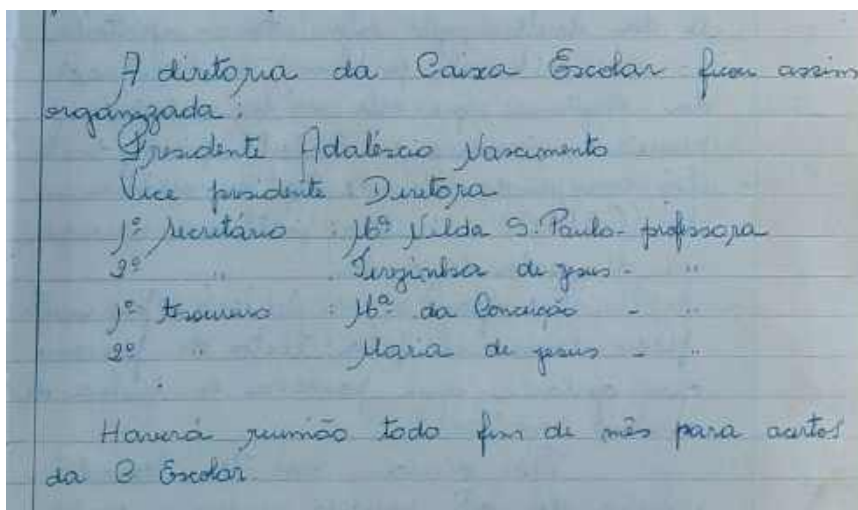 A diretoria da Caixa Escolar ficou assim
organizada:
Presidente Adaléscio Nascimento
Vice presidente: Diretora
1º secretário : Mª Nilda S. Paulo - professora
2º " . Terezinha de jesus - "
1º tesoureiro : Mª da Conceição - "
2º " Maria de jesus - "
Haverá reunião todo fim de mês para acertos
da C Escolar.